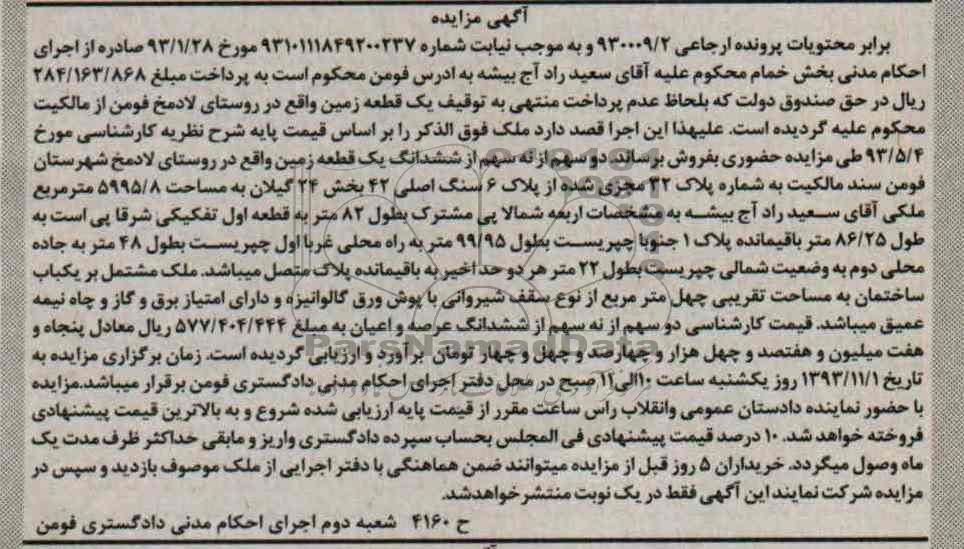 آگهی مزایده
برابر محتویات پرونده ارجاعی ۹۳۰۰۰۹/۲ و به موجب نیابت شماره ۹۳۱۰۱۱۱۸۴۹۲۰۰۲۳۷ مورخ ۹۳/۱/۲۸ صادره از اجرای
احکام مدنی بخش خمام محکوم علیه آقای سعید راد آج بیشه به ادرس فومن محکوم است به پرداخت مبلغ ۲۸۴/۱۶۳/۸۶۸
ریال در حق صندوق دولت که بلحاظ عدم پرداخت منتهی به توقیف یک قطعه زمین واقع در روستای لادمخ فومن از مالکیت
محکوم علیه گردیده است. علیهذا این اجرا قصد دارد ملک فوق الذکر را بر اساس قیمت پایه شرح نظریه کارشناسی مورخ
۹۳/۵/۴ طی مزایده حضوری بفروش برساند. دو سهم از نه سهم از ششدانگ یک قطعه زمین واقع در روستای لادمخ شهرستان
فومن سند مالکیت به شماره پلاک ۳۲ مجزی شده از پلاک ۶ سنگ اصلی ۴۲ بخش ۲۴ گیلان به مساحت ۵۹۹۵/۸ مترمربع
ملکی آقای سعید راد آج بیشه به مشخصات اربعه شمالا پی مشترک بطول ۸۲ متر به قطعه اول تفکیکی شرقا پی است به
طول ۸۶/۲۵ متر باقیمانده پلاک ۱ جنوبا چپریست بطول ۹۹/۹۵ متر به راه محلی غربا اول چپریست بطول ۴۸ متر به جاده
محلی دوم به وضعیت شمالی چپریست بطول ۲۲ متر هر دو حد اخیر به باقیمانده پلاک متصل میباشد. ملک مشتمل بر یکباب
ساختمان به مساحت تقریبی چهل متر مربع از نوع سقف شیروانی با پوش ورق گالوانیزه و دارای امتیاز برق و گاز و چاه نیمه
عمیق میباشد. قیمت کارشناسی دو سهم از نه سهم از ششدانگ عرصه و اعیان به مبلغ ۵۷۷/۴۰۴/۴۴۴ ریال معادل پنجاه و
هفت میلیون و هفتصد و چهل هزار و چهارصد و چهل و چهار تومان برآورد و ارزیابی گردیده است. زمان برگزاری مزایده به
تاریخ ۱۳۹۳/۱۱/۱ روز یکشنبه ساعت ۱۰الی۱۱ صبح در محل دفتر اجرای احکام مدنی دادگستری فومن برقرار میباشد.مزایده
با حضور نماینده دادستان عمومی وانقلاب راس ساعت مقرر از قیمت پایه ارزیابی شده شروع و به بالاترین قیمت پیشنهادی
فروخته خواهد شد. ۱۰ درصد قیمت پیشنهادی فی المجلس بحساب سپرده دادگستری واریز و مابقی حداکثر ظرف مدت یک
ماه وصول میگردد. خریداران ۵ روز قبل از مزایده میتوانند ضمن هماهنگی با دفتر اجرایی از ملک موصوف بازدید و سپس در
مزایده شرکت نمایند این آگهی فقط در یک نوبت منتشرخواهدشد.
ح ۴۱۶۰ شعبه دوم اجرای احکام مدنی دادگستری فومن
ParsNamadData